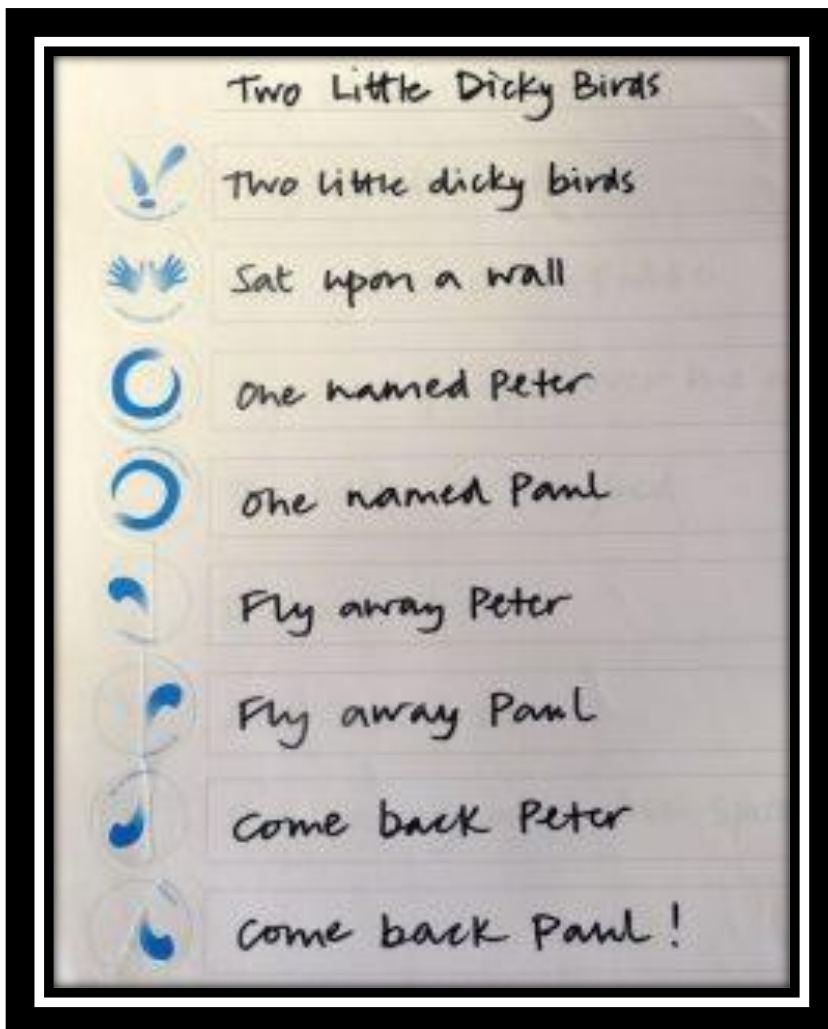 Two Little Dicky Birds
Two little dicky birds
Sat upon a wall
One named Peter
One named Paul
Fly away Peter
Fly away Paul
Come back Peter
Come back Paul!